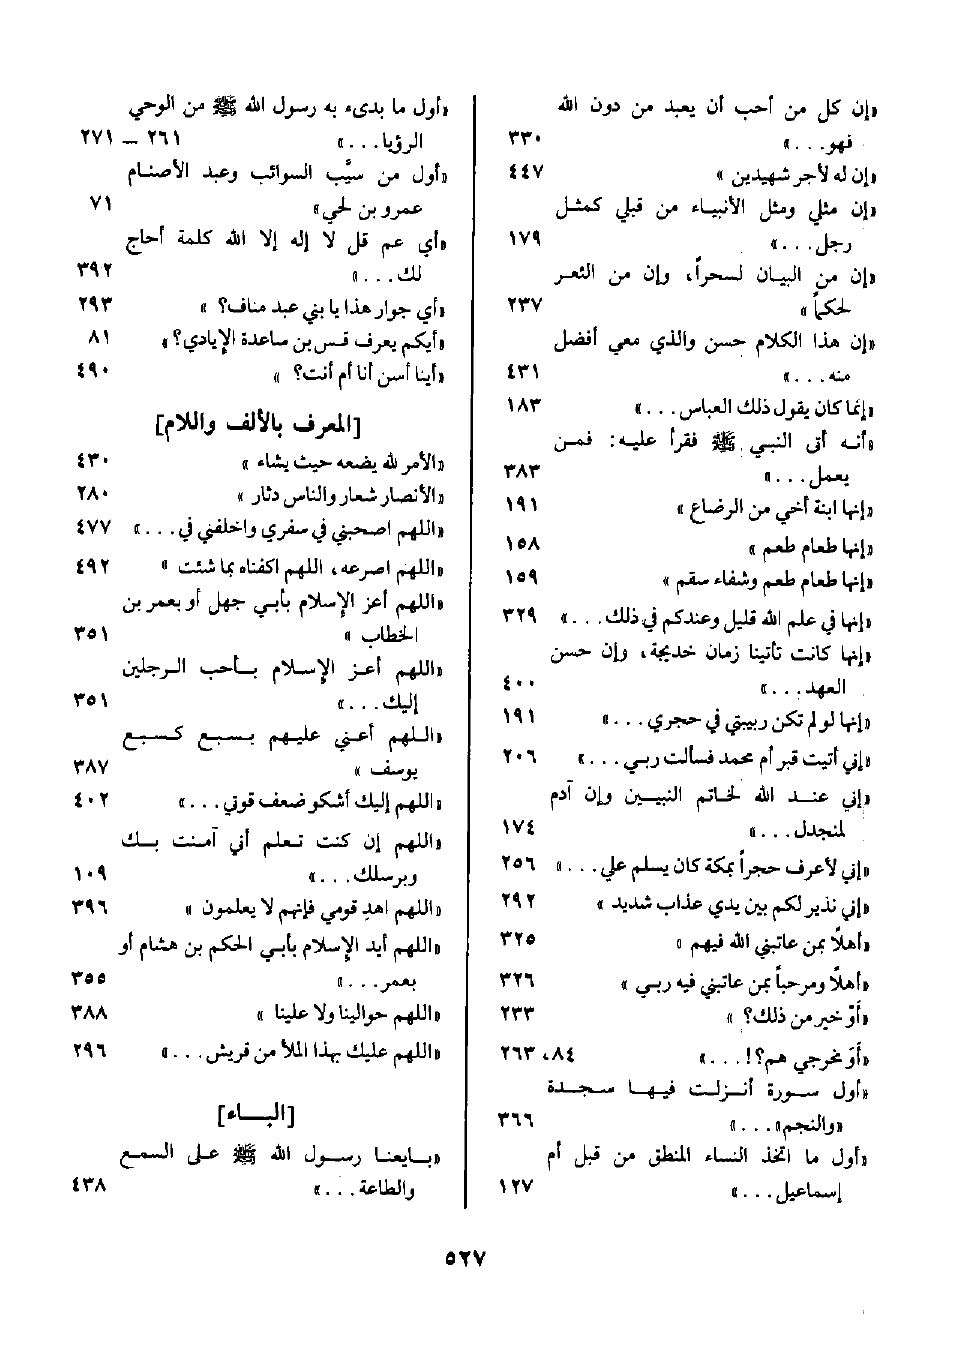 «إن كل من أحب أن يعبد من دون الله
فهو...» ٣٣٠
«إن له لأجر شهيدين» ٤٤٧
«إن مثلي ومثل الأنبياء من قبلي كمثل
رجل...» ١٧٩
«إن من البيان لسحراً، وإن من الشعر
لحكماً» ٢٣٧
«إن هذا الكلام حسن والذي معي أفضل
منه...» ٤٣١
«إنما كان يقول ذلك العباس...» ١٨٣
«أنه أتى النبي ﷺ فقرأ عليه: فمن
يعمل...» ٣٨٣
«إنها ابنة أخي من الرضاع» ١٩١
«إنها طعام طعم» ١٥٨
«إنها طعام طعم وشفاء سقم» ١٥٩
«إنها في علم الله قليل وعندكم في ذلك...» ٣٢٩
«إنها كانت تأتينا زمان خديجة، وإن حسن
العهد...» ٤٠٠
«إنها لو لم تكن ربيبتي في حجري...» ١٩١
«إني أتيت قبر أم محمد فسألت ربي...» ٢٠٦
«إني عند الله لخاتم النبيين وإن آدم
لمنجدل...» ١٧٤
«إني لأعرف حجراً بمكة كان يسلم علي...» ٢٥٦
«إني نذير لكم بين يدي عذاب شديد» ٢٩٢
«أهلاً بمن عاتبني الله فيهم» ٣٢٥
«أهلاً ومرحباً بمن عاتبني فيه ربي» ٣٢٦
«أوْ خير من ذلك؟» ٢٣٣
«أوَ مخرجي هم؟!...» ٨٤، ٢٦٣
«أول سورة أنزلت فيها سجدة
«والنجم»...» ٣٦٦
«أول ما اتخذ النساء المنطق من قبل أم
إسماعيل...» ١٢٧
«أول ما بدىء به رسول الله ﷺ من الوحي
الرؤيا...» ٢٦١ – ٢٧١
«أول من سيَّب السوائب وعبد الأصنام
عمرو بن لحي» ٧١
«أي عم قل لا إله إلا الله كلمة أحاج
لك...» ٣٩٢
«أي جوار هذا يا بني عبد مناف؟» ٢٩٣
«أيكم يعرف قس بن ساعدة الإيادي؟» ٨١
«أينا أسن أنا أم أنت؟» ٤٩٠
[المعرف بالألف واللام]
«الأمر لله يضعه حيث يشاء» ٤٣٠
«الأنصار شعار والناس دثار» ٢٨٠
«اللهم اصحبني في سفري واخلفني في...» ٤٧٧
«اللهم اصرعه، اللهم اكفناه بما شئت» ٤٩٢
«اللهم أعز الإسلام بأبي جهل أو بعمر بن
الخطاب» ٣٥١
«اللهم أعز الإسلام بأحب الرجلين
إليك...» ٣٥١
«اللهم أعني عليهم بسبع كسبع
يوسف» ٣٨٧
«اللهم إليك أشكو ضعف قوتي...» ٤٠٢
«اللهم إن كنت تعلم أني آمنت بك
وبرسلك...» ١٠٩
«اللهم اهدِ قومي فإنهم لا يعلمون» ٣٩٦
«اللهم أيد الإسلام بأبي الحكم بن هشام أو
بعمر...» ٣٥٥
«اللهم حوالينا ولا علينا» ٣٨٨
«اللهم عليك بهذا الملأ من قريش...» ٢٩٦
[الباء]
«بايعنا رسول الله ﷺ على السمع
والطاعة...» ٤٣٨
٥٢٧